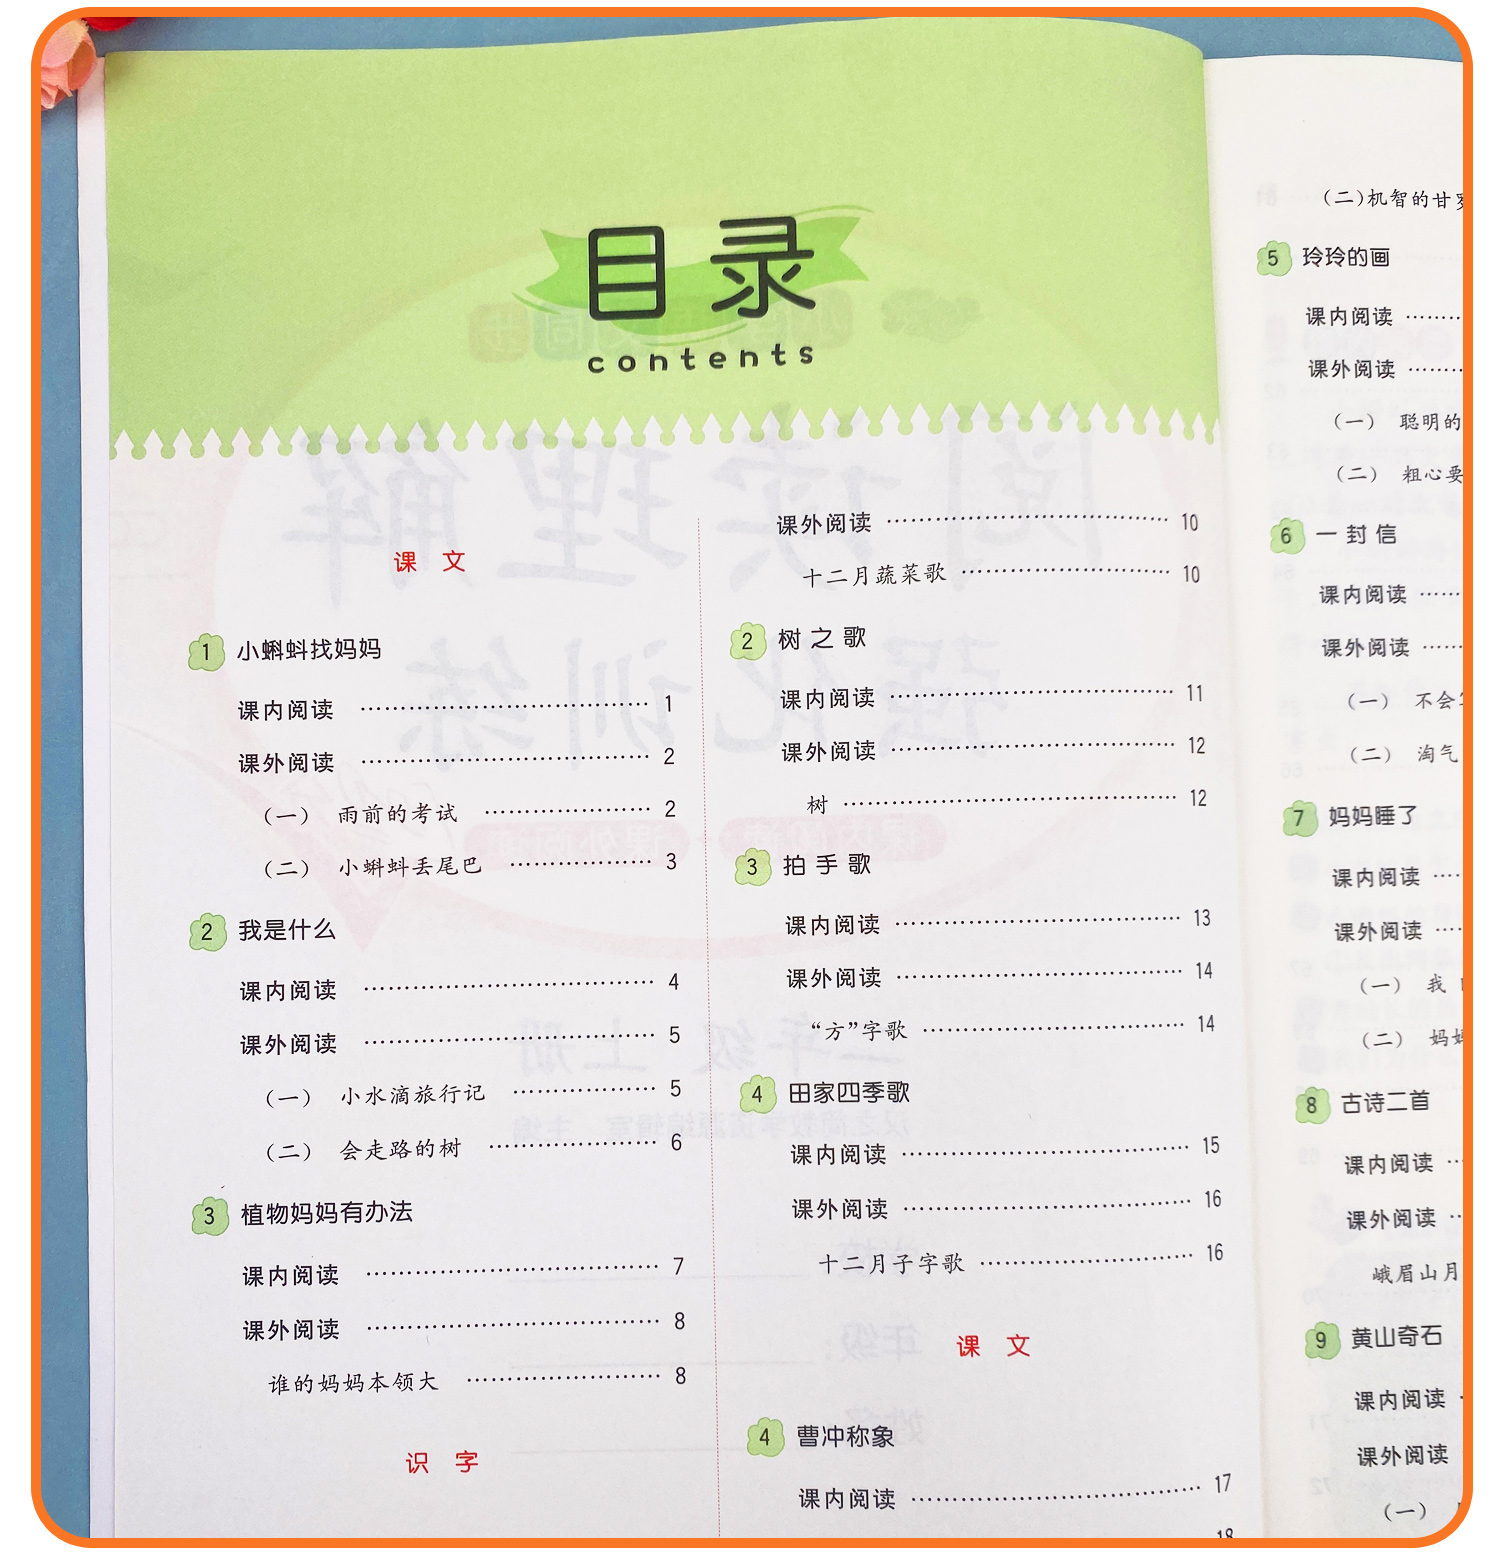 目录
contents
课 文
1 小蝌蚪找妈妈
课内阅读 ………………………… 1
课外阅读 ………………………… 2
（一） 雨前的考试 ……………… 2
（二） 小蝌蚪丢尾巴 …………… 3
2 我是什么
课内阅读 ………………………… 4
课外阅读 ………………………… 5
（一） 小水滴旅行记 …………… 5
（二） 会走路的树 ……………… 6
3 植物妈妈有办法
课内阅读 ………………………… 7
课外阅读 ………………………… 8
谁的妈妈本领大 ………………… 8
识 字
课外阅读 ………………………… 10
十二月蔬菜歌 …………………… 10
2 树 之 歌
课内阅读 ………………………… 11
课外阅读 ………………………… 12
树 ………………………………… 12
3 拍 手 歌
课内阅读 ………………………… 13
课外阅读 ………………………… 14
“方”字歌 ………………………… 14
4 田家四季歌
课内阅读 ………………………… 15
课外阅读 ………………………… 16
十二月子字歌 …………………… 16
课 文
4 曹冲称象
课内阅读 ………………………… 17
18
（二）机智的甘
5 玲玲的画
课内阅读 ………
课外阅读 ………
（一） 聪明的
（二） 粗心要
6 一 封 信
课内阅读 ……
课外阅读 ……
（一） 不会
（二） 淘气
7 妈妈睡了
课内阅读 ……
课外阅读 ……
（一） 我
（二） 妈妈
8 古诗二首
课内阅读 …
课外阅读 …
峨眉山月
9 黄山奇石
课内阅读
课外阅读
（一）